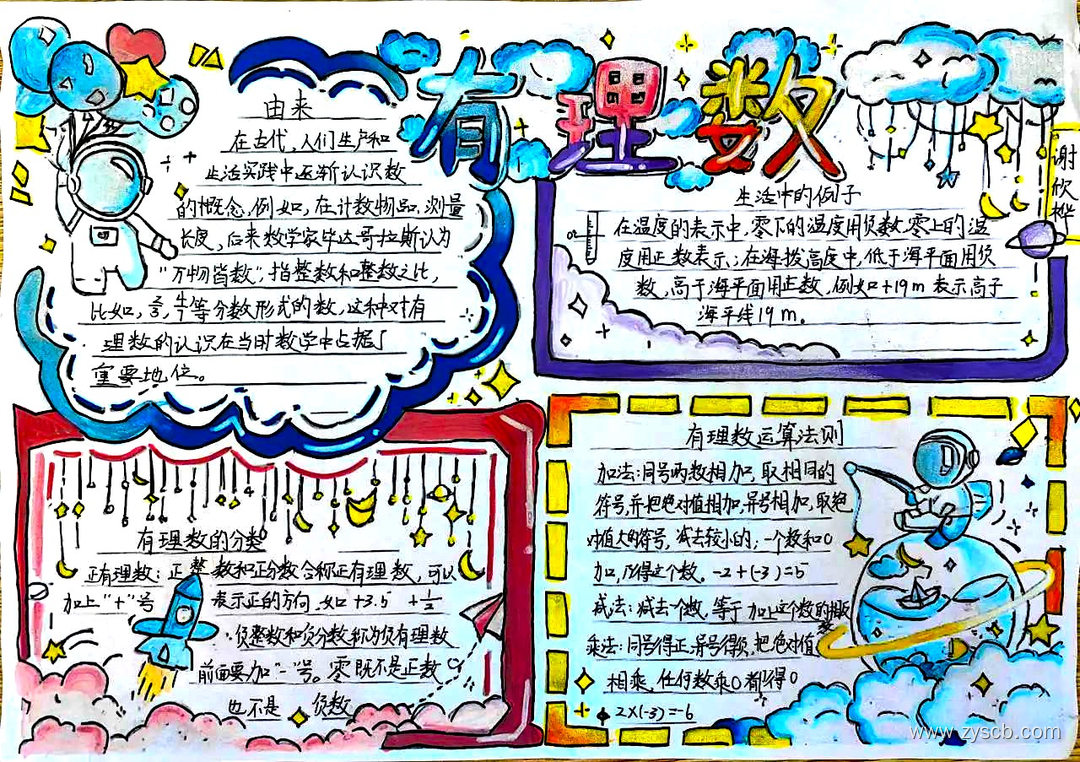 有理数
谢欣桦
由来
在古代,人们生产和
生活实践中逐渐认识数
的概念,例如,在计数物品、测量
长度,后来数学家毕达哥拉斯认为
"万物皆数",指整数和整数之比,
比如,等分数形式的数,这种对有
理数的认识在当时数学中占据了
重要地位。
生活中的例子
在温度的表示中,零下的温度用负数,零上的温
度用正数表示;在海拔高度中,低于海平面用负
数,高于海平面用正数,例如+19m表示高于
海平线19m。
有理数的分类
正有理数:正整数和正分数合称正有理数,可以
加上"+"号 表示正的方向.如+3.5 +1/2
负整数和负分数称为负有理数
前面要加"-"号。零既不是正数
也不是 负数
有理数运算法则
加法:同号两数相加,取相同的
符号,并把绝对值相加,异号相加,取绝
对值大的符号,减去较小的;一个数和0
加,仍得这个数。-2+(-3)=5
减法:减去一个数,等于加上这个数的相反数
乘法:同号得正,异号得负,把绝对值
相乘,任何数乘0都得0
2×(-3)=-6
www.zyscb.com